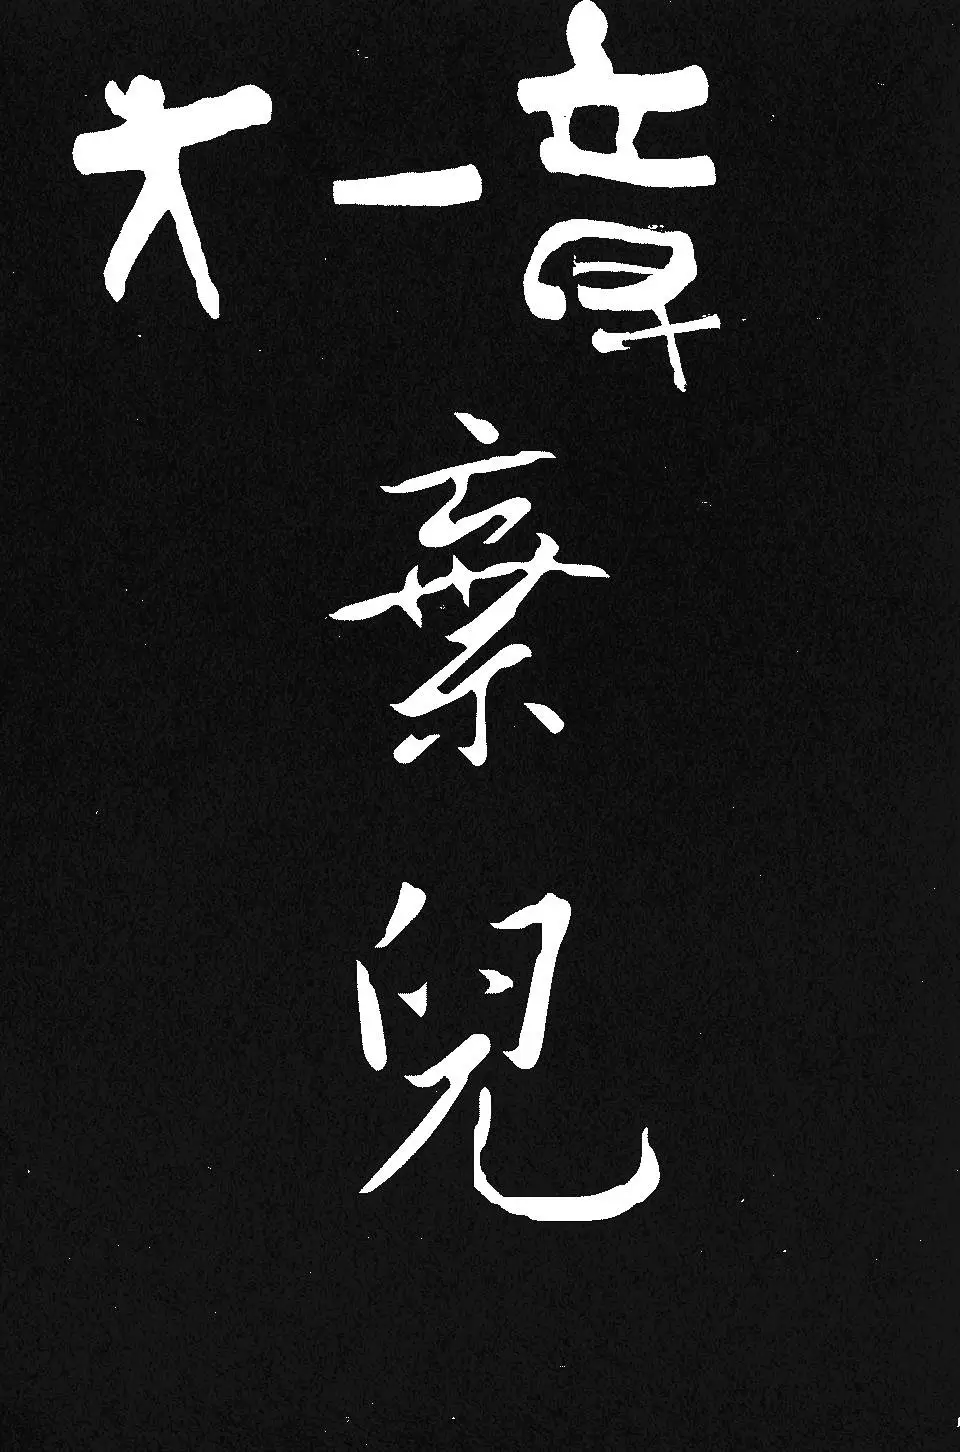 第一章
棄兒